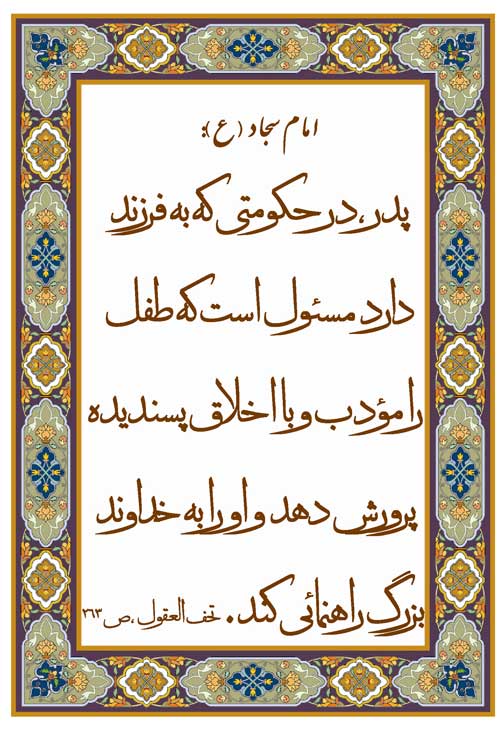 امام سجاد (ع):
پدر، در حکومتی که به فرزند
دارد مسئول است که طفل
را مؤدب و با اخلاق پسندیده
پرورش دهد و او را به خداوند
بزرگ راهنمائی کند. تحف العقول، ص ۲۶۳